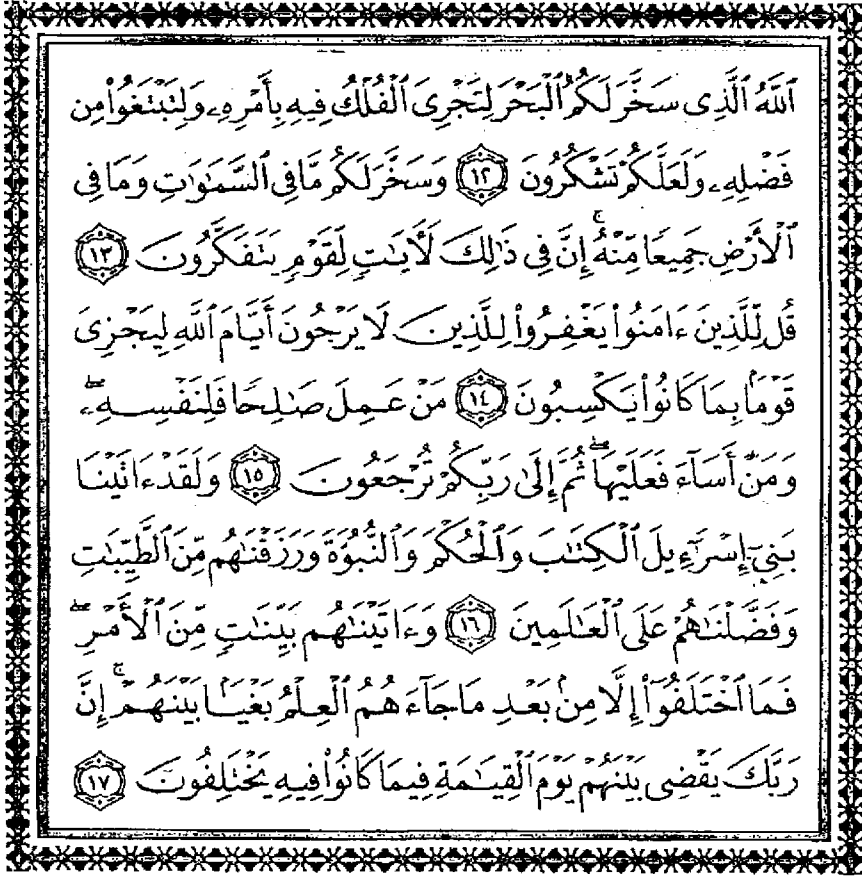 ٱللَّهُ ٱلَّذِى سَخَّرَ لَكُمُ ٱلْبَحْرَ لِتَجْرِىَ ٱلْفُلْكُ فِيهِ بِأَمْرِهِۦ وَلِتَبْتَغُوا۟ مِن
فَضْلِهِۦ وَلَعَلَّكُمْ تَشْكُرُونَ ١٢ وَسَخَّرَ لَكُم مَّا فِى ٱلسَّمَـٰوَٰتِ وَمَا فِى
ٱلْأَرْضِ جَمِيعًا مِّنْهُ ۚ إِنَّ فِى ذَٰلِكَ لَـَٔايَـٰتٍ لِّقَوْمٍ يَتَفَكَّرُونَ ١٣
قُل لِّلَّذِينَ ءَامَنُوا۟ يَغْفِرُوا۟ لِلَّذِينَ لَا يَرْجُونَ أَيَّامَ ٱللَّهِ لِيَجْزِىَ
قَوْمًۢا بِمَا كَانُوا۟ يَكْسِبُونَ ١٤ مَنْ عَمِلَ صَـٰلِحًا فَلِنَفْسِهِۦ ۖ
وَمَنْ أَسَآءَ فَعَلَيْهَا ۖ ثُمَّ إِلَىٰ رَبِّكُمْ تُرْجَعُونَ ١٥ وَلَقَدْ ءَاتَيْنَا
بَنِىٓ إِسْرَٰٓءِيلَ ٱلْكِتَـٰبَ وَٱلْحُكْمَ وَٱلنُّبُوَّةَ وَرَزَقْنَـٰهُم مِّنَ ٱلطَّيِّبَـٰتِ
وَفَضَّلْنَـٰهُمْ عَلَى ٱلْعَـٰلَمِينَ ١٦ وَءَاتَيْنَـٰهُم بَيِّنَـٰتٍ مِّنَ ٱلْأَمْرِ ۖ
فَمَا ٱخْتَلَفُوٓا۟ إِلَّا مِنۢ بَعْدِ مَا جَآءَهُمُ ٱلْعِلْمُ بَغْيًۢا بَيْنَهُمْ ۚ إِنَّ
رَبَّكَ يَقْضِى بَيْنَهُمْ يَوْمَ ٱلْقِيَـٰمَةِ فِيمَا كَانُوا۟ فِيهِ يَخْتَلِفُونَ ١٧